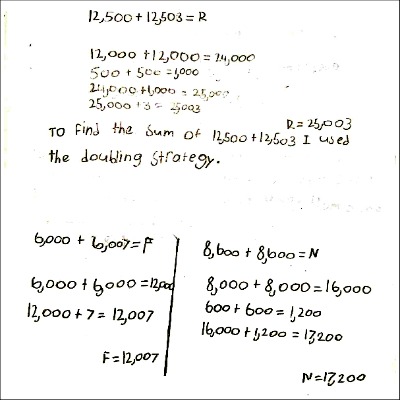 12,500 + 12,503 = R
12,000 + 12,000 = 24,000
500 + 500 = 1,000
24,000 + 1,000 = 25,000
25,000 + 3 = 25,003
R = 25,003
To find the sum of 12,500 + 12,503 I used
the doubling strategy.
6,000 + 6,007 = F
6,000 + 6,000 = 12,000
12,000 + 7 = 12,007
F = 12,007
8,600 + 8,600 = N
8,000 + 8,000 = 16,000
600 + 600 = 1,200
16,000 + 1,200 = 17,200
N = 17,200